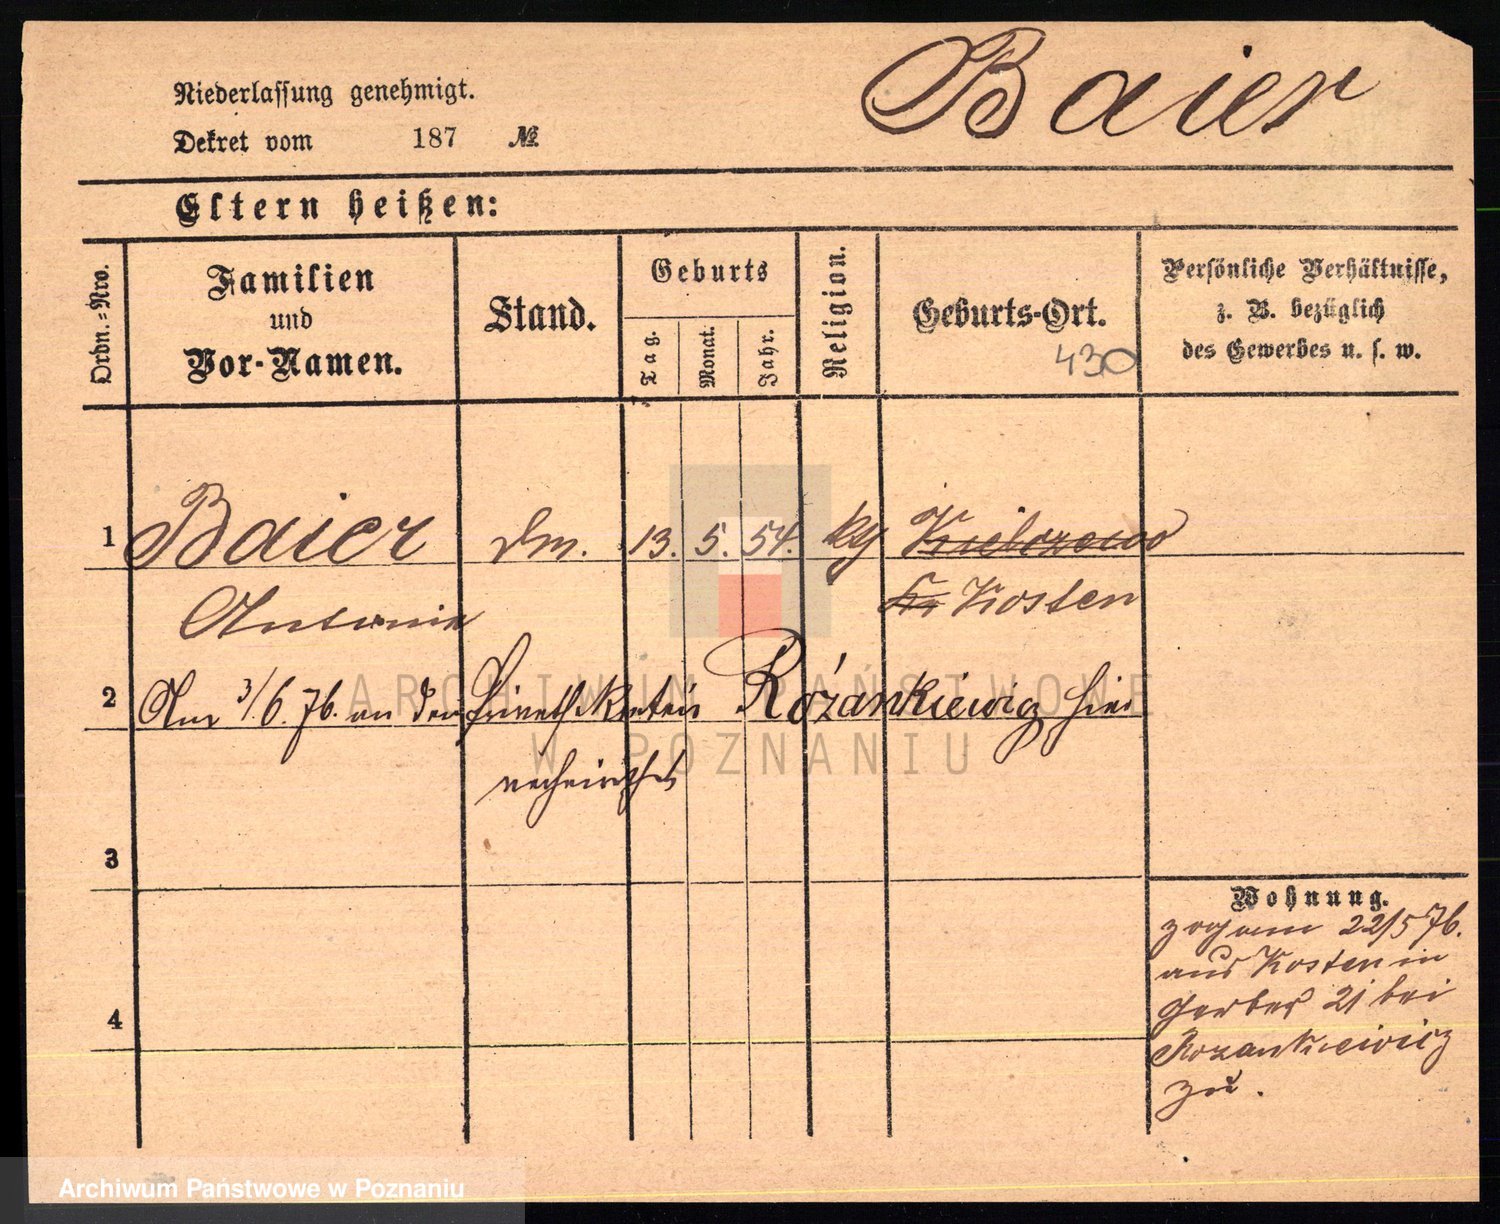 Baier
Niederlassung genehmigt.
Dekret vom 187 №
Eltern heißen:
Ordn.=Nro.
Familien
und
Vor-Namen.
Stand.
Geburts
Tag.
Monat.
Jahr.
Religion.
Geburts-Ort.
430
Persönliche Verhältnisse,
z. B. bezüglich
des Gewerbes u. s. w.
1 Baier 13. 5. 54. Kielczewo
Antonie Kr Kosten
2 Am 3/6. 76. an den Rózankiewiz hier
verheirathet
3
4
Wohnung.
zog am 22/5 76.
aus Kosten in
Gerber 21 bei
Rozankiewicz
zu.
ARCHIWUM PAŃSTWOWE
W POZNANIU
Archiwum Państwowe w Poznaniu